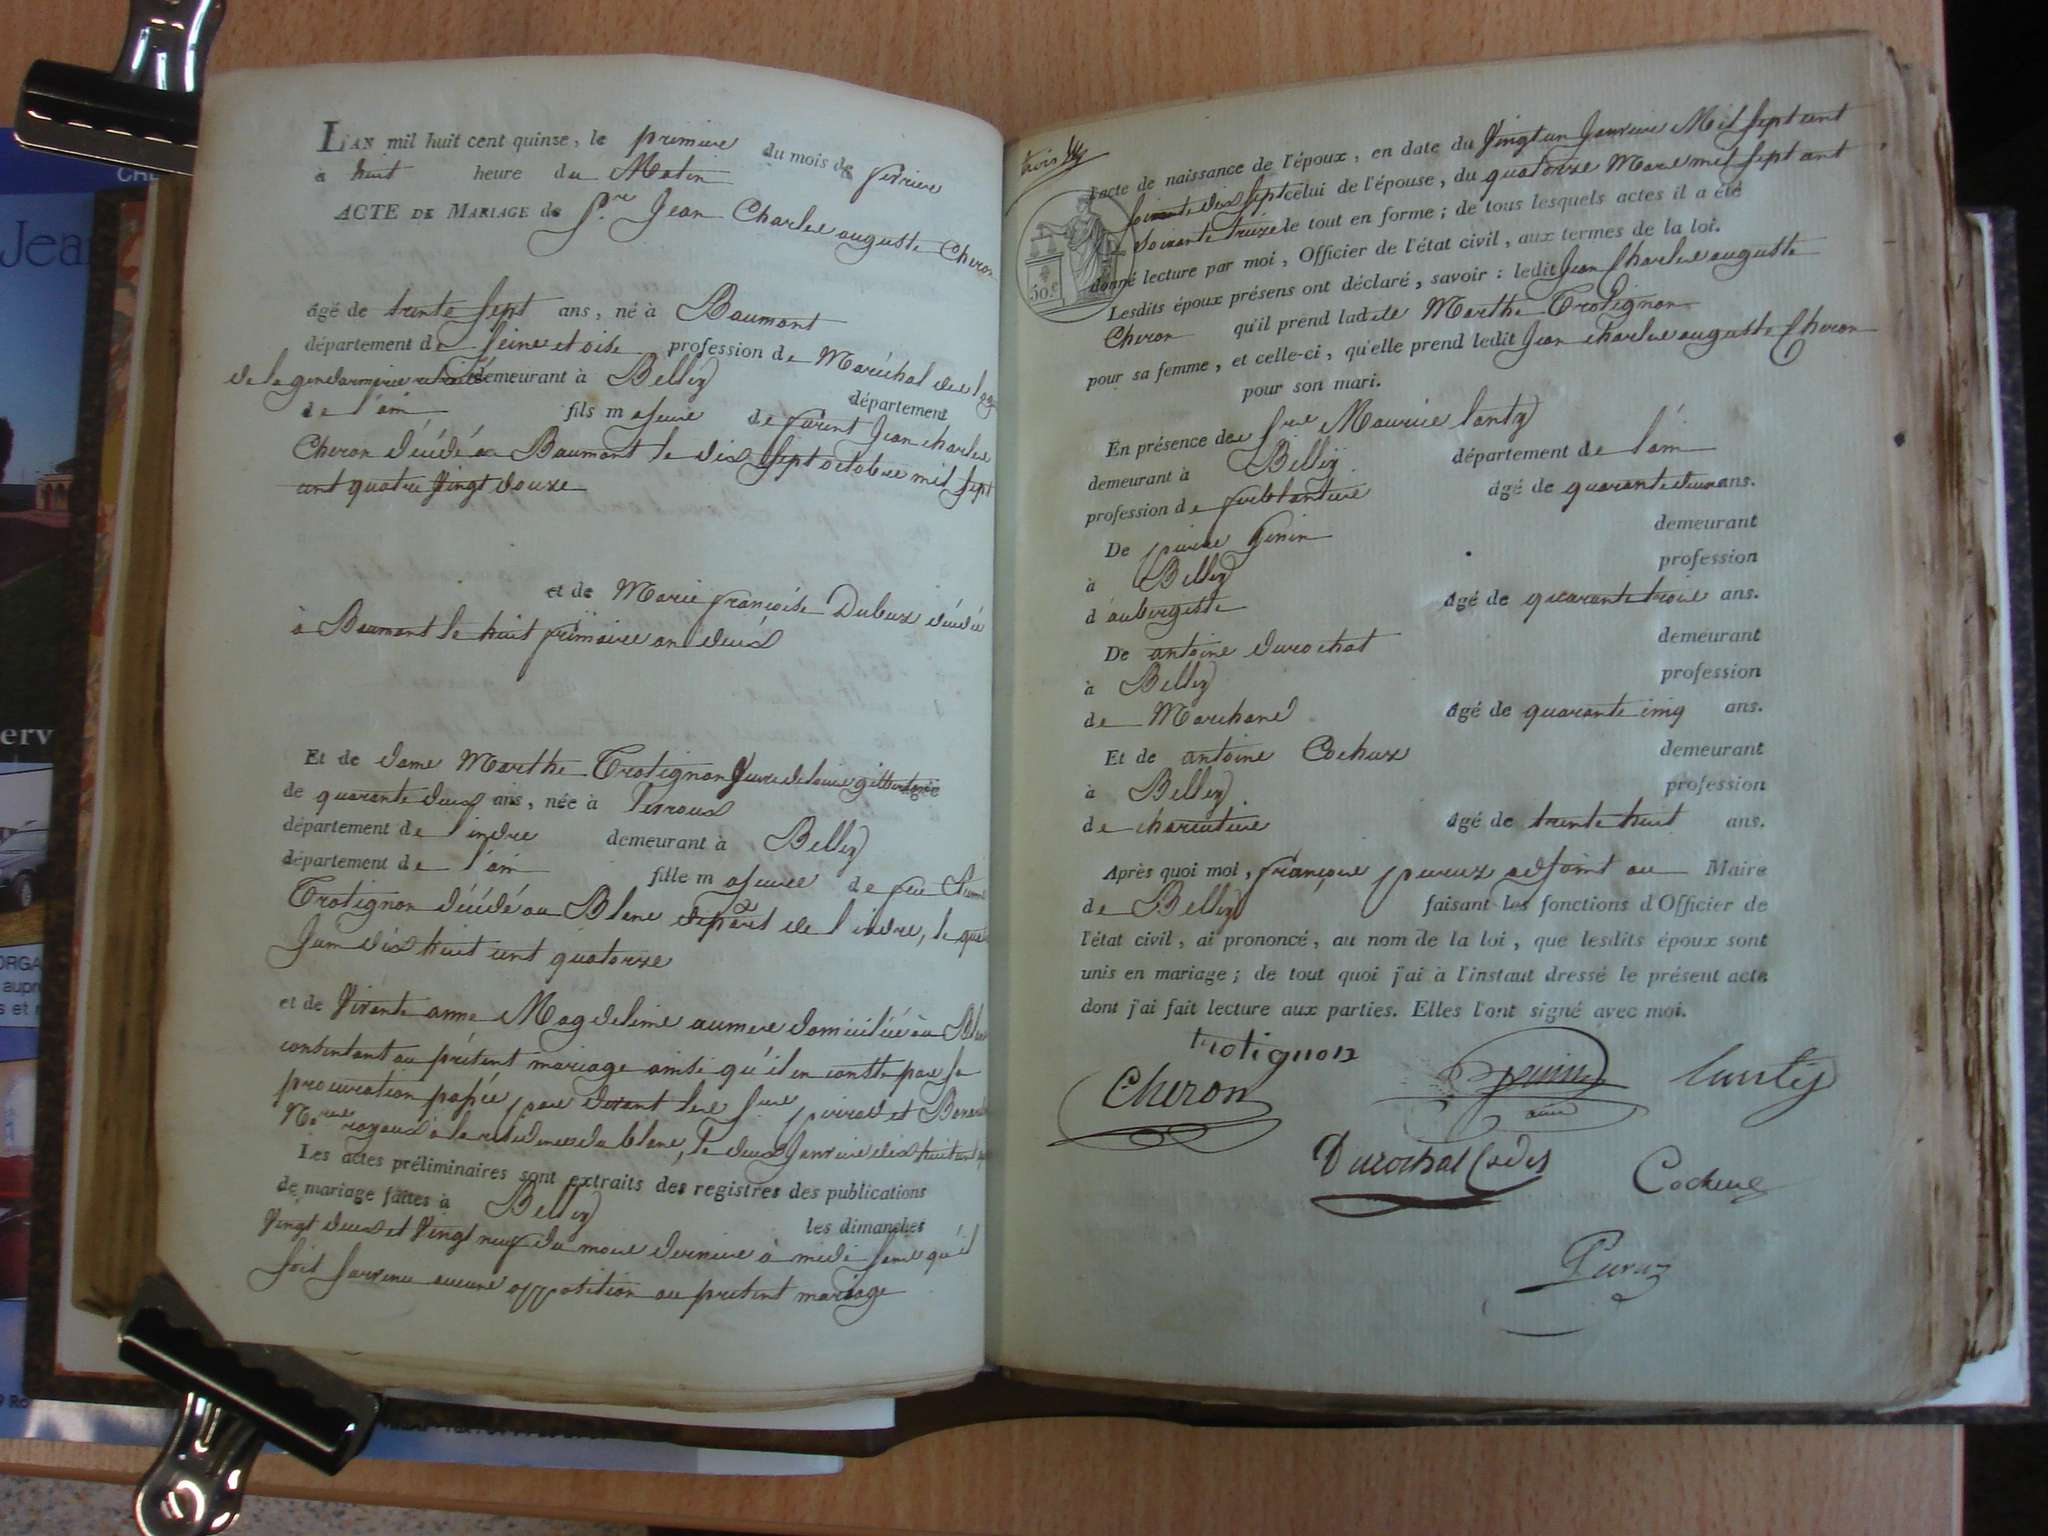 L'AN mil huit cent quinze, le premier du mois de fevrier
à huit heure du Matin
ACTE DE MARIAGE de Sr. Jean Charles auguste Cheron
âgé de trente sept ans, né à Baumont
département de Seine et oise profession de Maréchal des logis
de la gendarmerie demeurant à Belley département
de l'ain fils majeur de Jean charles
Cheron décédé à Baumont le dix sept octobre mil sept
cent quatre vingt douze
et de Marie françoise Dubux décédée
à Baumont le huit frimaire an deux
Et de dame Marthe Trotignon Veuve de louis gilbert âgée
de quarante deux ans, née à
département de l'indre demeurant à Belley
département de l'ain fille majeure de feu
Trotignon décédé au Blanc départ de l'indre, le
Juin dix huit cent quatorze
et de Vivante anne Magdeleine aumere domiciliée au Blanc
consentant au présent mariage ainsi qu'il en conste par sa
procuration passée par devant les Srs et
Nores royaux à la residence du blanc, le deux Janvier dix huit cent
Les actes préliminaires sont extraits des registres des publications
de mariage faites à Belley les dimanches
Vingt deux et Vingt neuf du mois dernier à midi sans qu'il
soit survenu aucune opposition au présent mariage
trois
50.c
l'acte de naissance de l'époux, en date du Vingt un Janvier Mil sept cent
soixante dix sept celui de l'épouse, du quatorze Mars mil sept cent
soixante treize le tout en forme; de tous lesquels actes il a été
donné lecture par moi, Officier de l'état civil, aux termes de la loi.
Lesdits époux présens ont déclaré, savoir: ledit Jean Charles auguste
Cheron qu'il prend ladite Marthe Trotignon
pour sa femme, et celle-ci, qu'elle prend ledit Jean charles auguste Cheron
pour son mari.
En présence de Sieur Maurice lanty
demeurant à Belley département de l'ain
profession de ferblantier âgé de quarante deux ans.
De pierre Genin demeurant
à Belley profession
d'aubergiste âgé de quarante trois ans.
De antoine durochat demeurant
à Belley profession
de Marchand âgé de quarante cinq ans.
Et de antoine Cochux demeurant
à Belley profession
de charcutier âgé de trente huit ans.
Après quoi moi, françois peruz adjoint au Maire
de Belley faisant les fonctions d'Officier de
l'état civil, ai prononcé, au nom de la loi, que lesdits époux sont
unis en mariage; de tout quoi j'ai à l'instaut dressé le présent acte
dont j'ai fait lecture aux parties. Elles l'ont signé avec moi.
trotignon
Cheron Lanty
Durochat Cadet